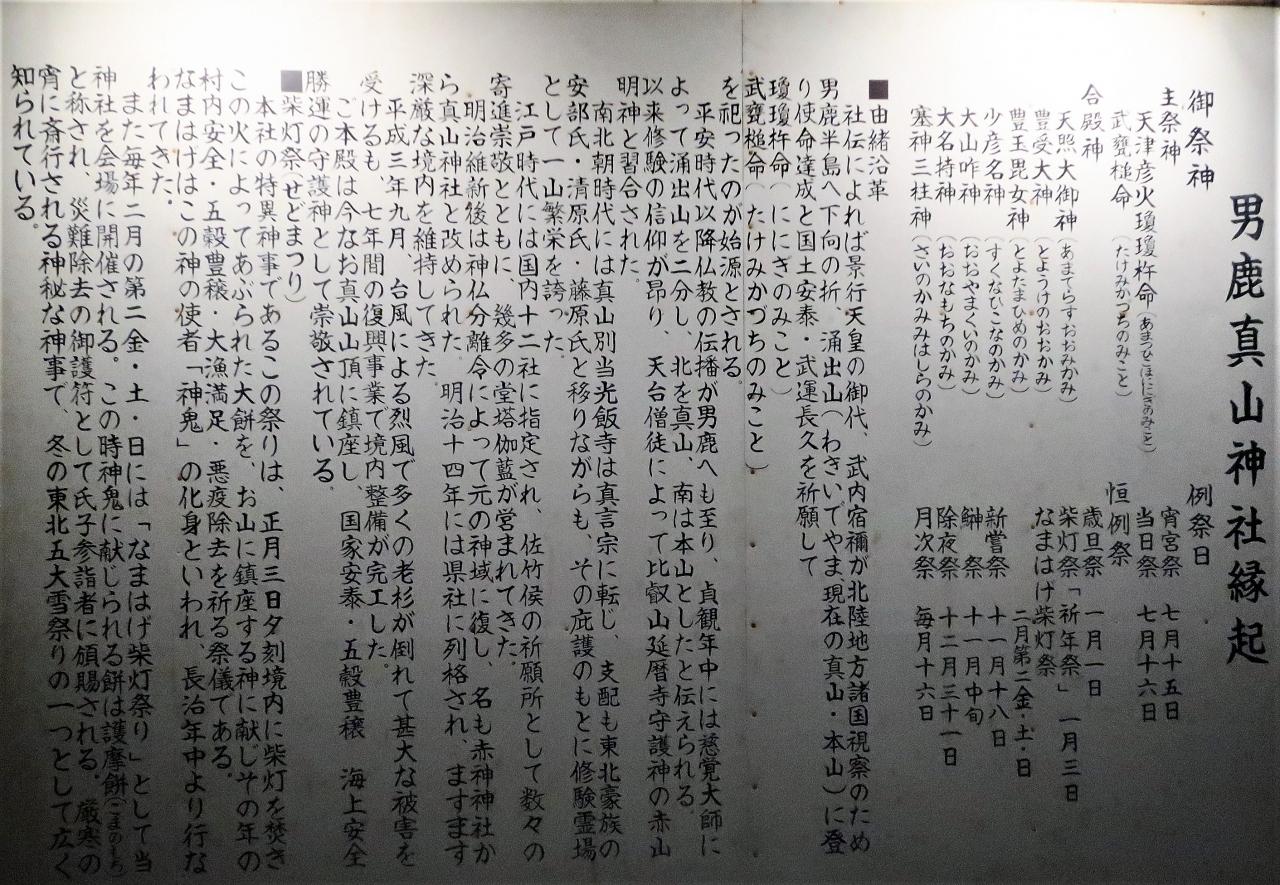 男鹿真山神社縁起
御祭神
主祭神
天津彦火瓊瓊杵命(あまつひこほににぎのみこと)
武甕槌命(たけみかづちのみこと)
合殿神
天照大御神(あまてらすおおみかみ)
豊受大神(とようけのおおかみ)
豊玉毘女神(とよたまひめのかみ)
少彦名神(すくなひこなのかみ)
大山咋神(おおやまくいのかみ)
大名持神(おおなもちのかみ)
塞神三柱神(さいのかみみはしらのかみ)
例祭日
宵宮祭 七月十五日
当日祭 七月十六日
恒例祭
歳旦祭 一月一日
柴灯祭「祈年祭」 一月三日
なまはげ柴灯祭
二月第二金・土・日
新嘗祭 十一月十八日
鰰祭 十一月中旬
除夜祭 十二月三十一日
月次祭 毎月十六日
■由緒沿革
社伝によれば景行天皇の御代、武内宿禰が北陸地方諸国視察のため
男鹿半島へ下向の折、涌出山(わきいでやま、現在の真山・本山)に登
り使命達成と国土安泰・武運長久を祈願して
瓊瓊杵命(ににぎのみこと)
武甕槌命(たけみかづちのみこと)
を祀ったのが始源とされる。
平安時代以降仏教の伝播が男鹿へも至り、貞観年中には慈覚大師に
よって涌出山を二分し、北を真山、南は本山としたと伝えられる。
以来修験の信仰が昂り、天台僧徒によって比叡山延暦寺守護神の赤山
明神と習合された。
南北朝時代には真山別当光飯寺は真言宗に転じ、支配も東北豪族の
安部氏・清原氏・藤原氏と移りながらも、その庇護のもとに修験霊場
として一山繁栄を誇った。
江戸時代には国内十二社に指定され、佐竹侯の祈願所として数々の
寄進崇敬とともに、幾多の堂塔伽藍が営まれてきた。
明治維新後は神仏分離令によって元の神域に復し、名も赤神神社か
ら真山神社と改められた。明治十四年には県社に列格され、ますます
深厳な境内を維持してきた
平成三年九月、台風による烈風で多くの老杉が倒れて甚大な被害を
受けるも、七年間の復興事業で境内整備が完工した。
ご本殿は今なお真山山頂に鎮座し、国家安泰・五穀豊穣 海上安全
勝運の守護神として崇敬されている。
■柴灯祭(せどまつり)
本社の特異神事であるこの祭りは、正月三日夕刻境内に柴灯を焚き
この火によってあぶられた大餅を、お山に鎮座する神に献じその年の
村内安全・五穀豊穣・大漁満足・悪疫除去を祈る祭儀である。
なまはげはこの神の使者「神鬼」の化身といわれ、長治年中より行な
われてきた。
また毎年二月の第二金・土・日には「なまはげ柴灯祭り」として当
神社を会場に開催される。この時神鬼に献じられる餅は護摩餅(ごまのもち)
と称され、災難除去の御護符として氏子参詣者に頒賜される。厳寒の
宵に斎行される神秘な神事で、冬の東北五大雪祭りの一つとして広く
知られている。